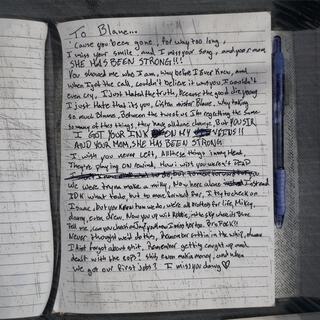 To Blane...
'Cause you been gone, for way too long,
I miss your smile and I miss your song, and your mom
SHE HAS BEEN STRONG!!!
You showed me who I am, way before I ever knew, and
When I got the call, couldn't believe it was you, I couldn't
even cry, I just hated the truth, Because the good die young
I just Hate that its you, Listen mister Blane, why taking
so much Blame, Between the two of us Im regretting the same
so many of this things, they have all done change, But YOUR
I GOT YOUR INK ON MY VEINS!!
AND YOUR MOM, SHE HAS BEEN STRONG
I wish you never left, All these things in my Head,
They're playing on Rewind, How i wish you weren't DEAD
We were tryna make a milly, Now here alone I stand
IDK what to do, but to move forward for, I try to check on
Isaac, but you know how we do, we're all brothers for life, Mikey,
danny, even drew. Now you up with Robbie, in the sky where its blue
Tell me, can you check on Jay for me I miss her too. Bro Fuck!!
Never thought we'd do this, Remember sittin in the whip,
I aint forgot about shit, Remember getting caught up and
dealt with the cops? Shits even makin money, and when
We got our first jobs? I miss you dawg ♡